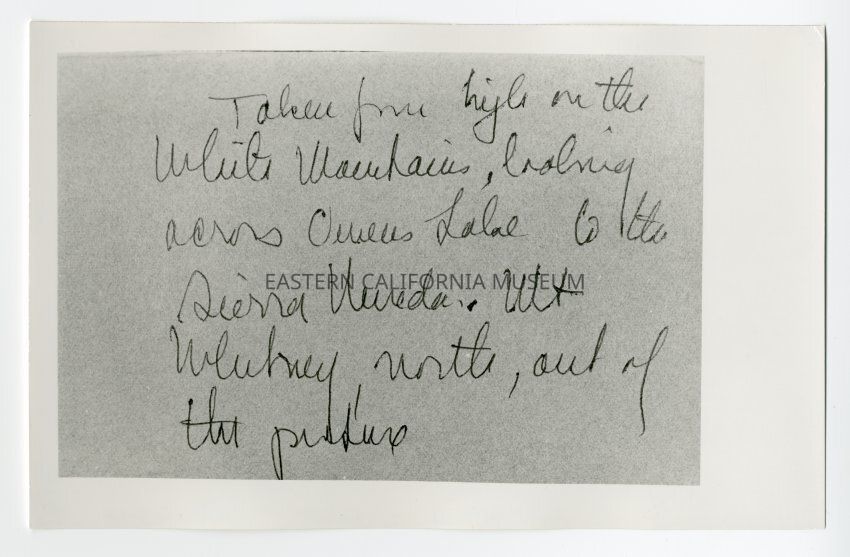 Taken from high on the
White Mountains, looking
across Owens Lake to the
EASTERN CALIFORNIA MUSEUM
Sierra Nevada. Mt
Whitney, north, out of
the picture